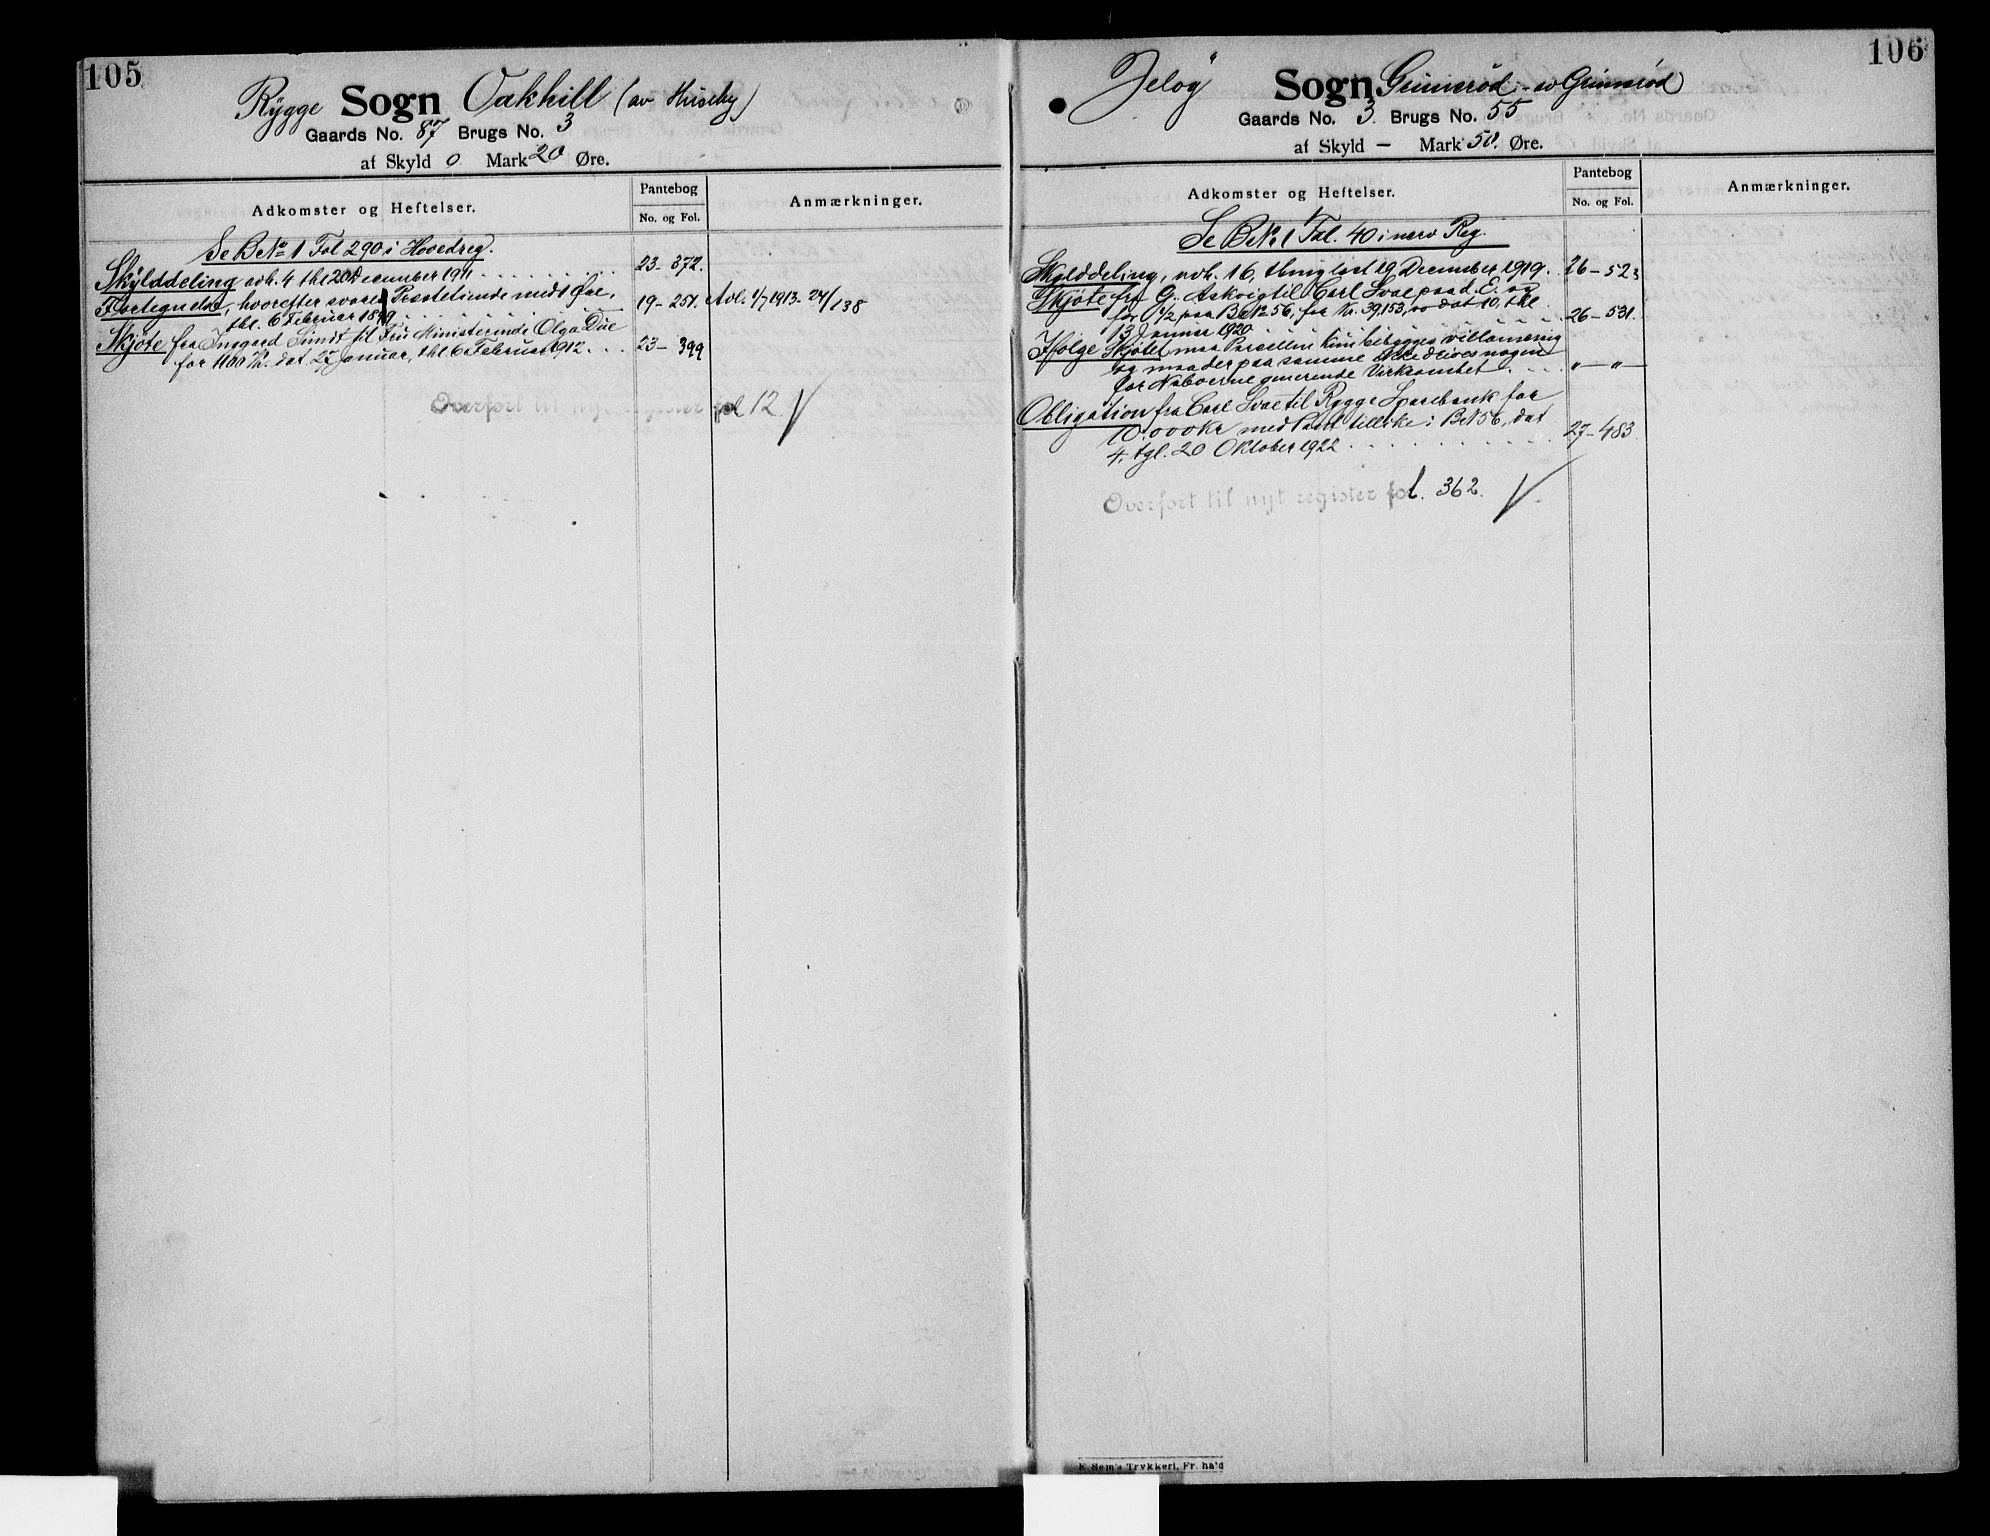 105
Rygge Sogn Oakhill (av Huseby)
Gaards No. 87 Brugs No. 3
af Skyld 0 Mark 20 Øre.
Adkomster og Heftelser.
Pantebog
No. og Fol.
Anmærkninger.
Se B№ 1 Fol 290 i Hovedreg.
Skylddeling avh. 4 thl 20 December 1911 23 - 372.
Fortegnelse, hvorefter svares Præstetiende med 1 Øre,
thl. 6 Februar 18 19 - 251. Avl. 1/7 1913 - 24/138
Skjøte fra Ingaard til Fru Ministerinde Olga Due
for 1100 Kr. dat. 27 Januar, thl 6 Februar 1912 23 - 399
Overført til nyt register fol 12.
106
Jeløy Sogn Grimsrød av Grimsrød
Gaards No. 3. Brugs No. 55
af Skyld — Mark 50. Øre.
Adkomster og Heftelser.
Pantebog
No. og Fol.
Anmærkninger.
Se B№ 1 Fol. 40 i nærv Reg.
Skylddeling, avh. 16, thinglæst 19 December 1919. 26 - 523
Skjøte fra G. Askvig til Carl Svae paa d. E. og
for 1/2 paa B№ 56, for Kr. 39,153,00 dat 10, thl
13 Januar 1920 26 - 531.
Ifølge Skjøtet maa Parcellen kun bebygges villamæssig
og maa der paa samme ikke drives nogen
for Naboerne generende Virksomhet „ — „ —
Obligation fra Carl Svae til Rygge Sparebank for
10.000 Kr med Pant tillike i B№ 56, dat
4, tgl. 20 Oktober 1922 27 - 483
Overført til nyt register fol. 362.
E. Sem's Trykkeri, Fr. hald